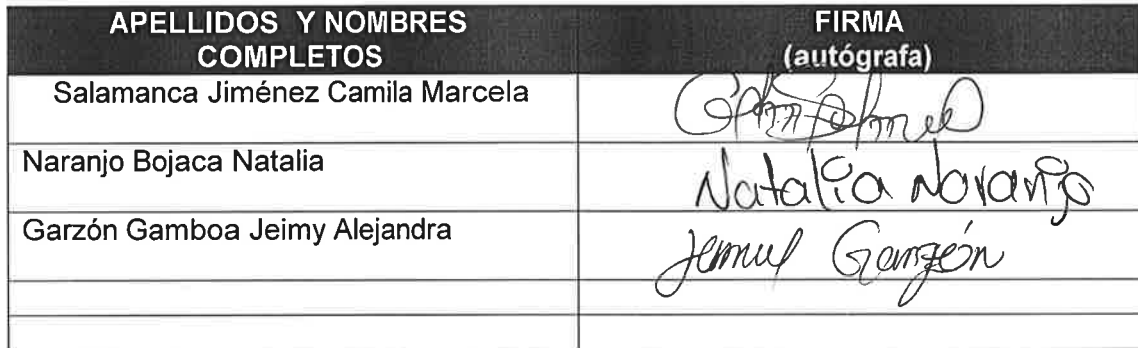 APELLIDOS Y NOMBRES
COMPLETOS
FIRMA
(autógrafa)
Salamanca Jiménez Camila Marcela
Naranjo Bojaca Natalia
Natalia Naranjo
Garzón Gamboa Jeimy Alejandra
Garzón